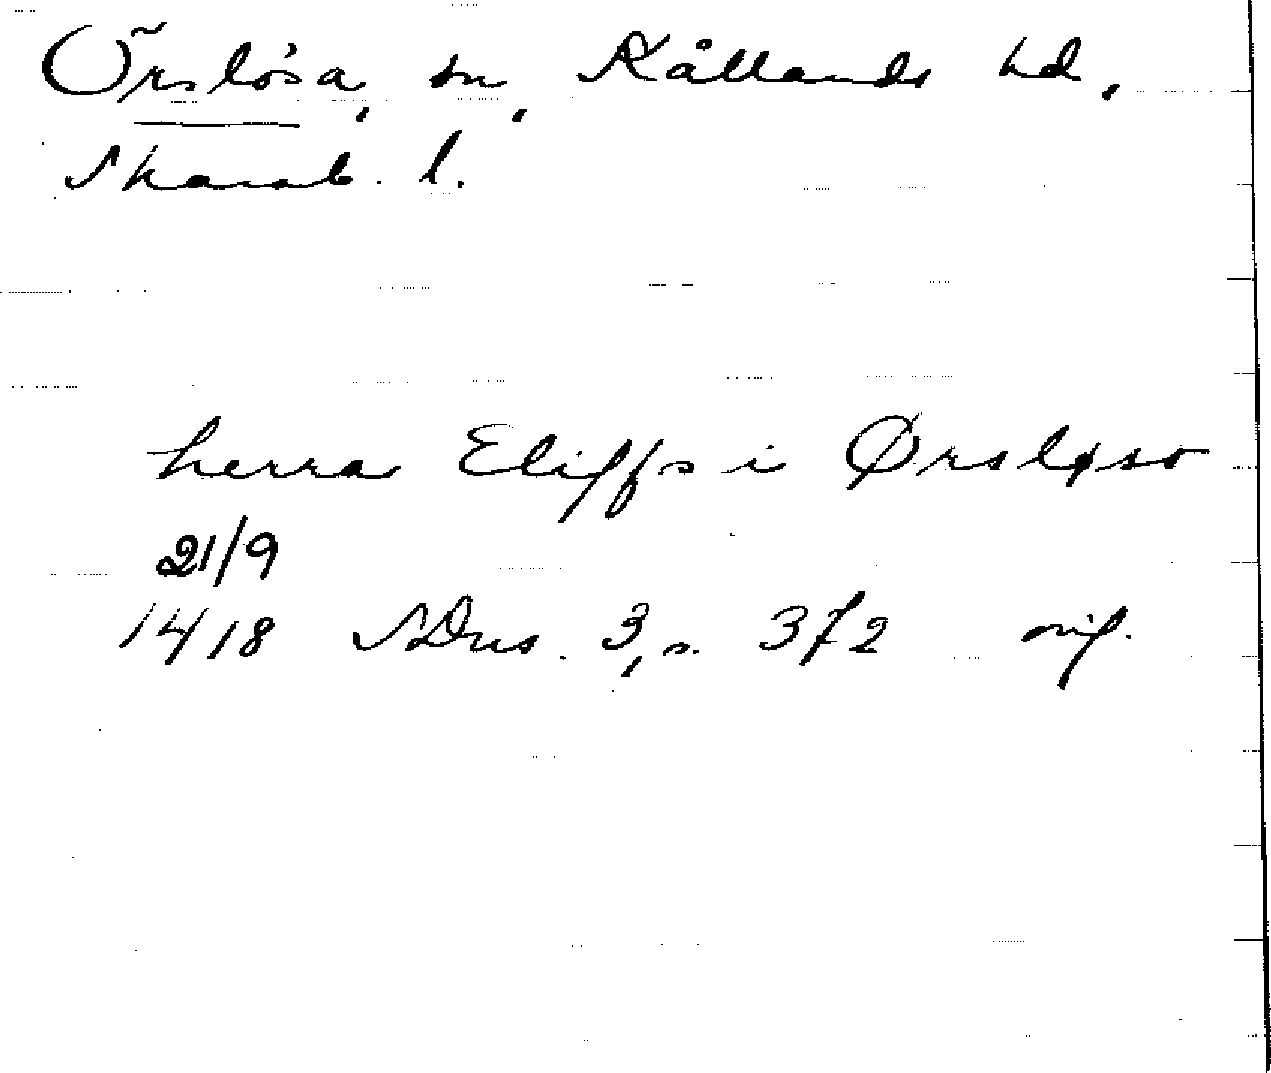 Örslösa, sn, Kållands hd,
Skarab. l.
herra Eliffs i Ørsløso
21/9
1418 SDns. 3, s. 372 orig.